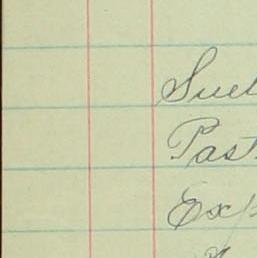 Suel
Past
Exp